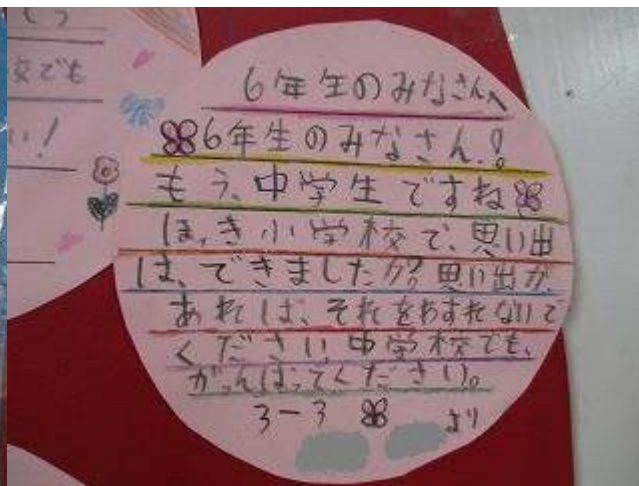 とう
交でも
い！
6年生のみなさんへ
6年生のみなさん！
もう、中学生ですね
ほっき小学校で、思い出
は、できましたか?思い出が、
あれば、それをわすれないで
ください。中学校でも、
がんばってください。
3-3 より